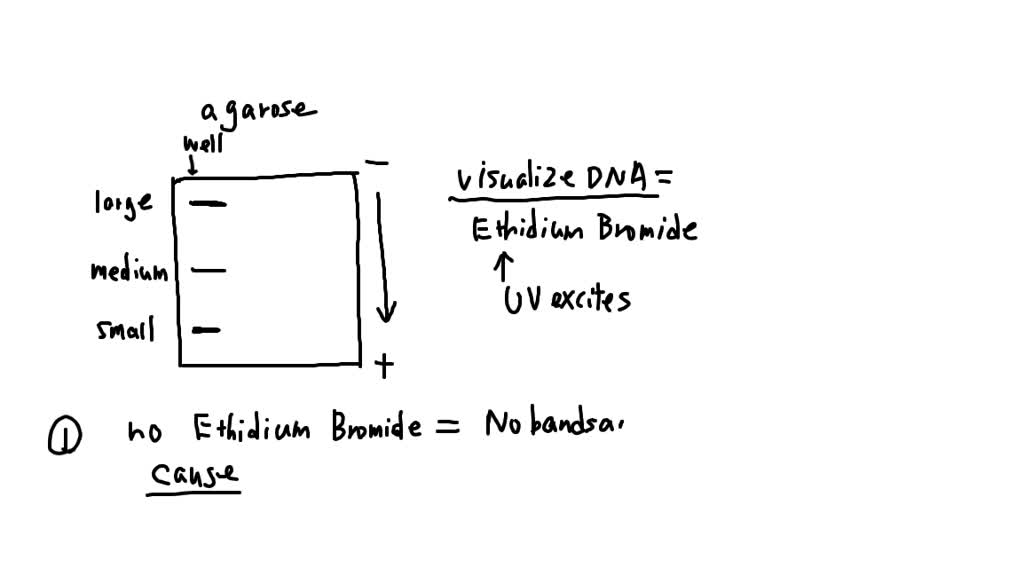 agarose
well
−
large
medium
small
+
visualize DNA =
Ethidium Bromide
↑
UV excites
① no Ethidium Bromide = No bands a
cause